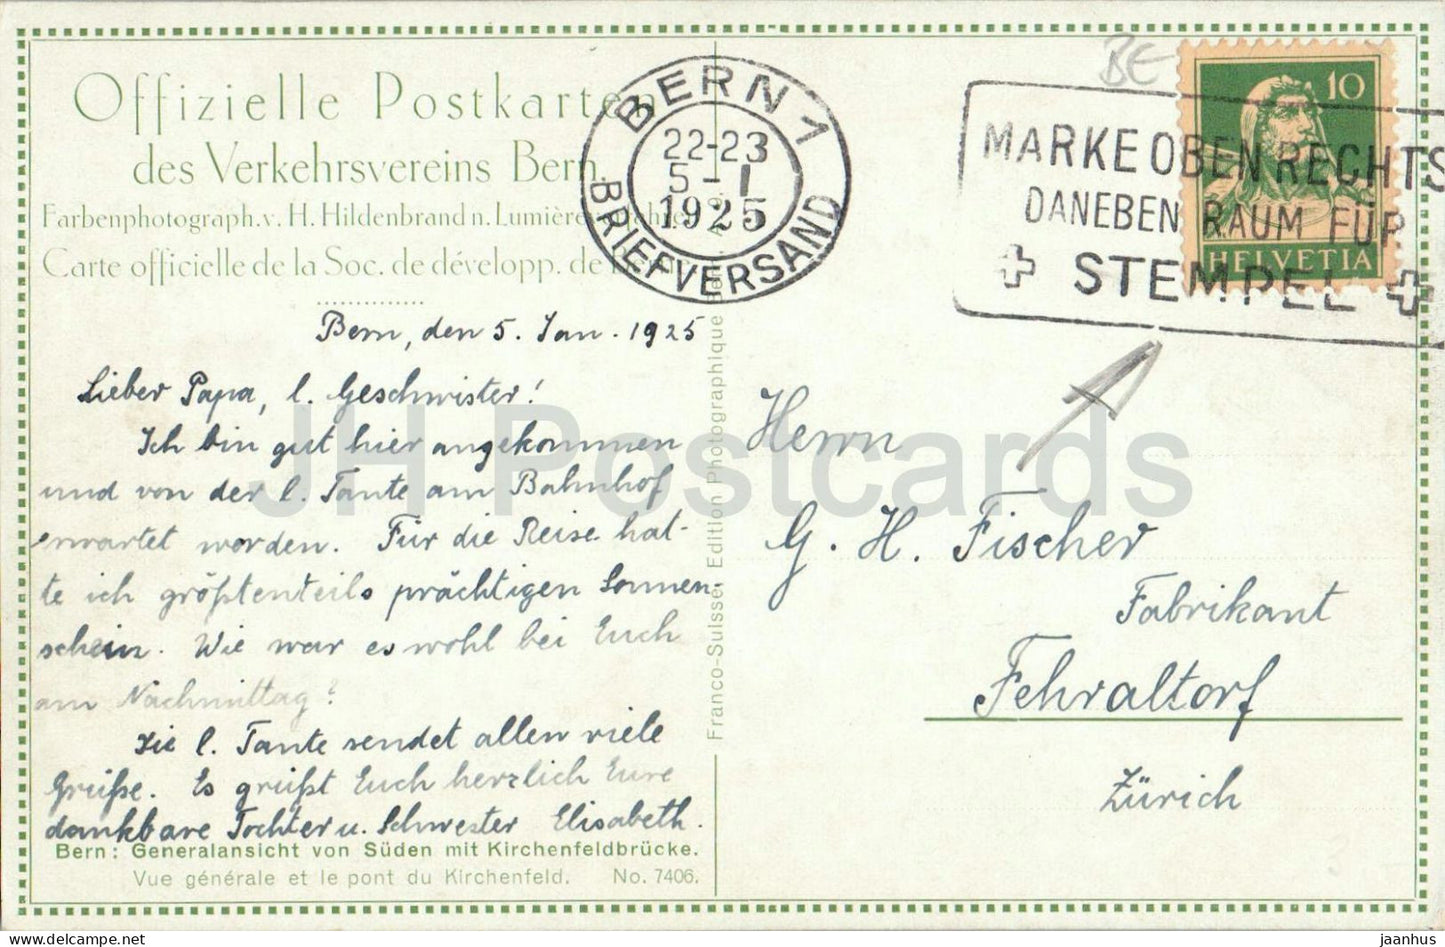 Offizielle Postkarten
des Verkehrsvereins Bern.
Farbenphotograph. v. H. Hildenbrand n. Lumière
Carte officielle de la Soc. de développ. de
BERN 1
22-23
5-I
1925
BRIEFVERSAND
BE
MARKE OBEN RECHTS
DANEBEN RAUM FÜR
STEMPEL
10
HELVETIA
Bern, den 5. Jan. 1925
Lieber Papa, l. Geschwister!
Ich bin gut hier angekommen
und von der l. Tante am Bahnhof
erwartet worden. Für die Reise hat-
te ich größtenteils prächtigen Sonnen-
schein. Wie war es wohl bei Euch
am Nachmittag?
Die l. Tante sendet allen viele
Grüße. Es grüßt Euch herzlich Eure
dankbare Tochter u. Schwester Elisabeth.
Bern: Generalansicht von Süden mit Kirchenfeldbrücke.
Vue générale et le pont du Kirchenfeld. No. 7406.
Franco-Suisse, Edition Photographique
Herrn
G. H. Fischer
Fabrikant
Fehraltorf
Zürich
3
JH Postcards
hippostcard.com/store/jhpostcards
jaanhus